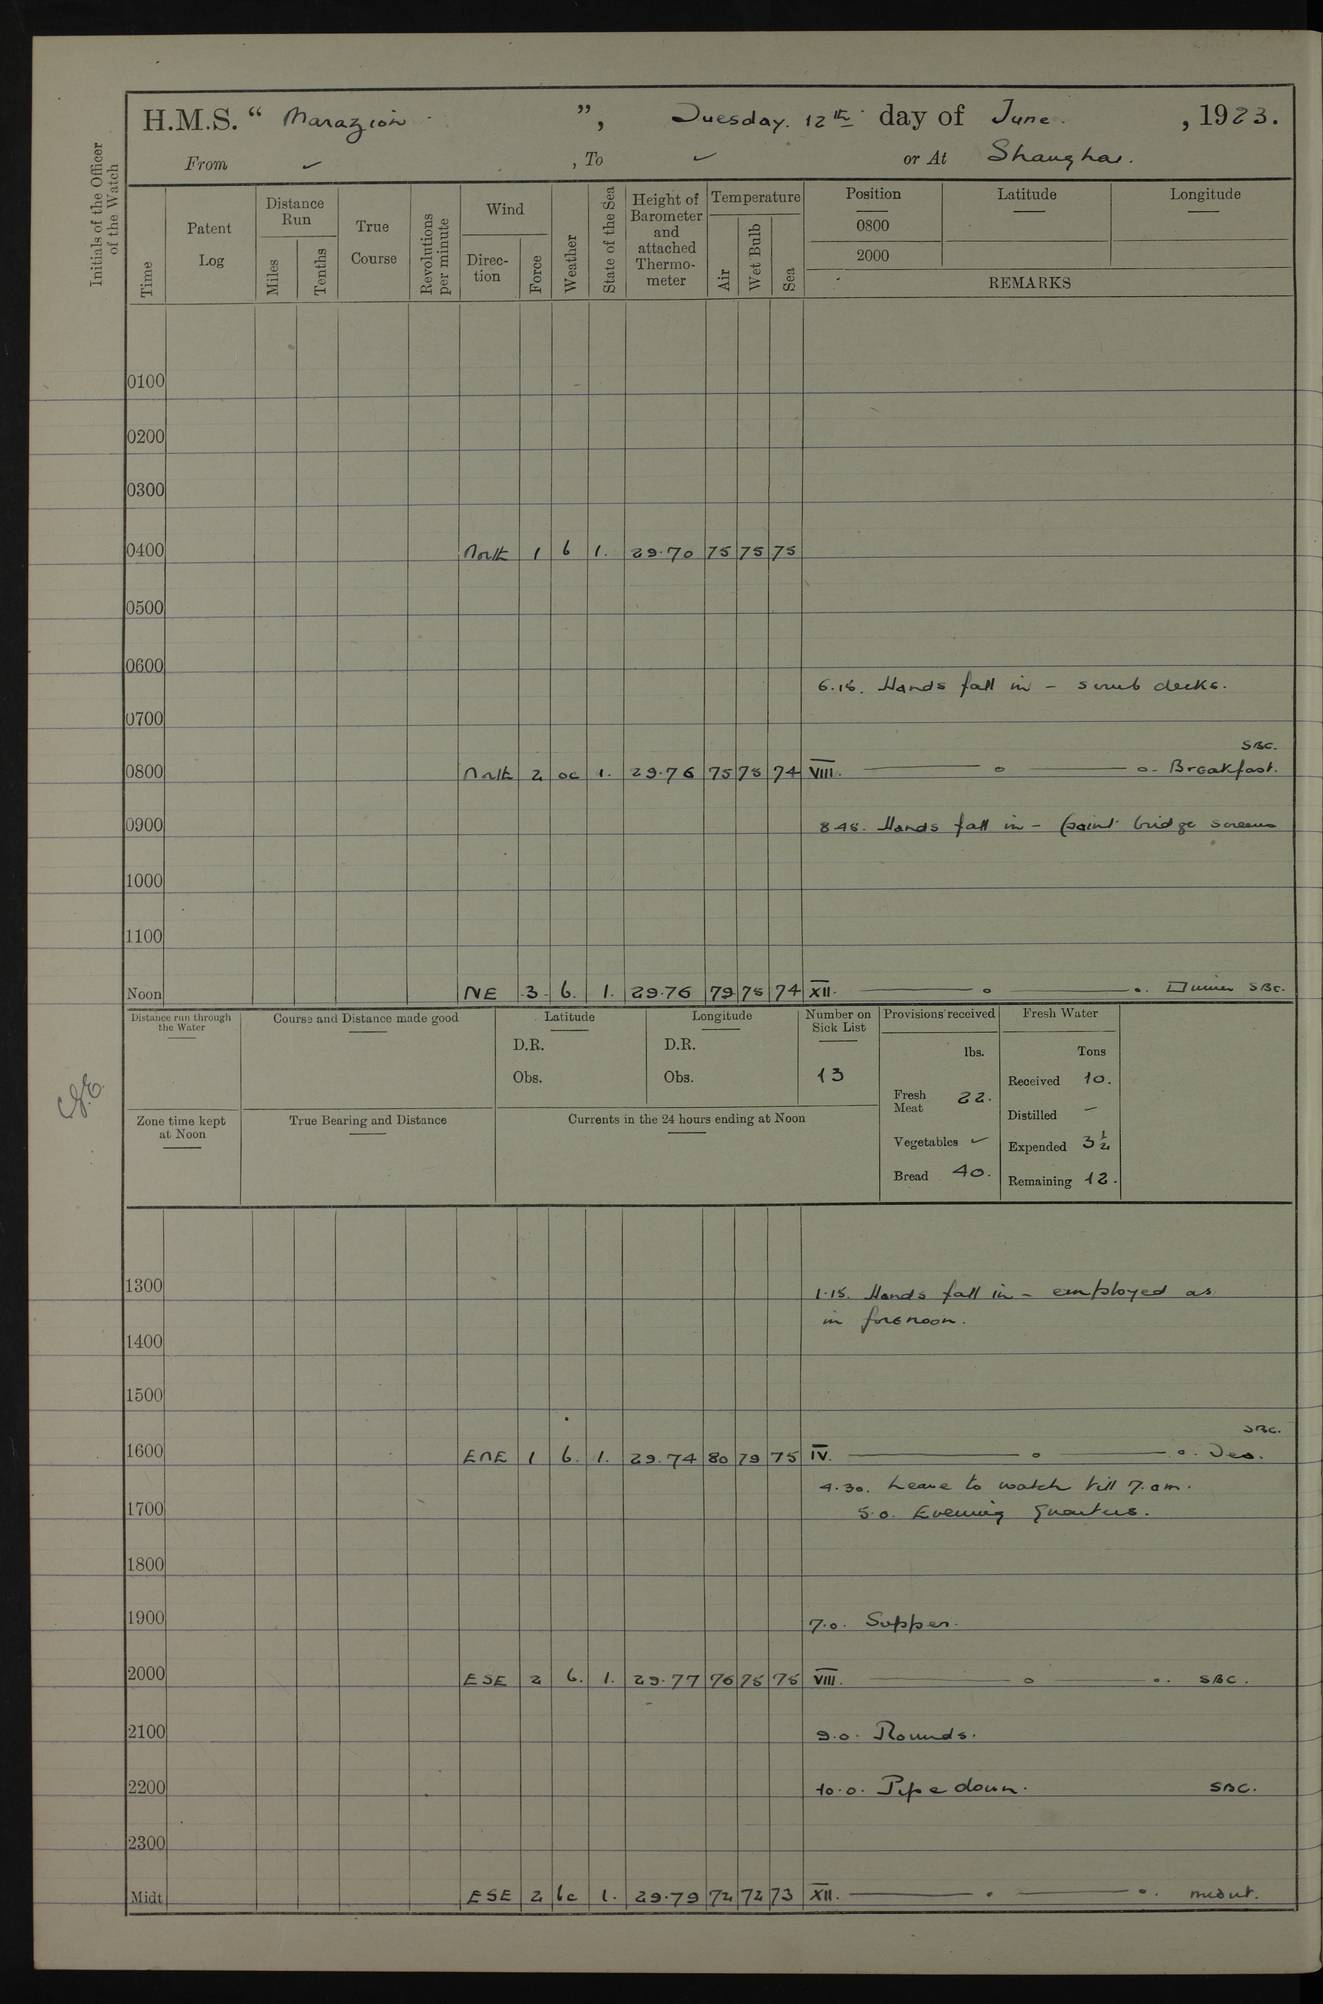 H.M.S. “ Marazion ”, Tuesday. 12th day of June. , 1923.
From ✓ , To ✓ or At Shanghai.
Initials of the Officer of the Watch
Time Patent Log Distance Run Miles Tenths True Course Revolutions per minute Wind Direction Force Weather State of the Sea Height of Barometer and attached Thermometer Temperature Air Wet Bulb Sea Position Latitude Longitude
0800
2000
REMARKS
0100
0200
0300
0400 North 1 b 1. 29.70 75 75 75
0500
0600
6.15. Hands fall in – scrub decks.
0700
SBC.
0800 North 2 oc 1. 29.76 75 75 74 VIII. ——— o ——— o. Breakfast.
0900 8.45. Hands fall in – paint bridge screens
1000
1100
Noon NE 3 b. 1. 29.76 79 75 74 XII. ——— o ——— o. Dinner SBC.
Distance run through the Water Course and Distance made good Latitude Longitude Number on Sick List Provisions received Fresh Water
D.R. D.R. lbs. Tons
Obs. Obs. 13 Received 10.
Fresh Meat 22. Distilled –
Zone time kept at Noon True Bearing and Distance Currents in the 24 hours ending at Noon
Vegetables ✓ Expended 3 1/2
Bread 40. Remaining 12.
1300 1.15. Hands fall in – employed as
in forenoon.
1400
1500
SBC.
1600 ENE 1 b. 1. 29.74 80 79 75 IV. ——— o ——— o. Tea.
4.30. Leave to watch till 7.am.
1700 5.0. Evening Quarters.
1800
1900 7.0. Supper.
2000 ESE 2 b. 1. 29.77 76 75 75 VIII. ——— o ——— o. SBC.
2100 9.0. Rounds.
2200 10.0. Pipe down. SBC.
2300
Midt ESE 2 bc 1. 29.79 72 72 73 XII. ——— o ——— o.